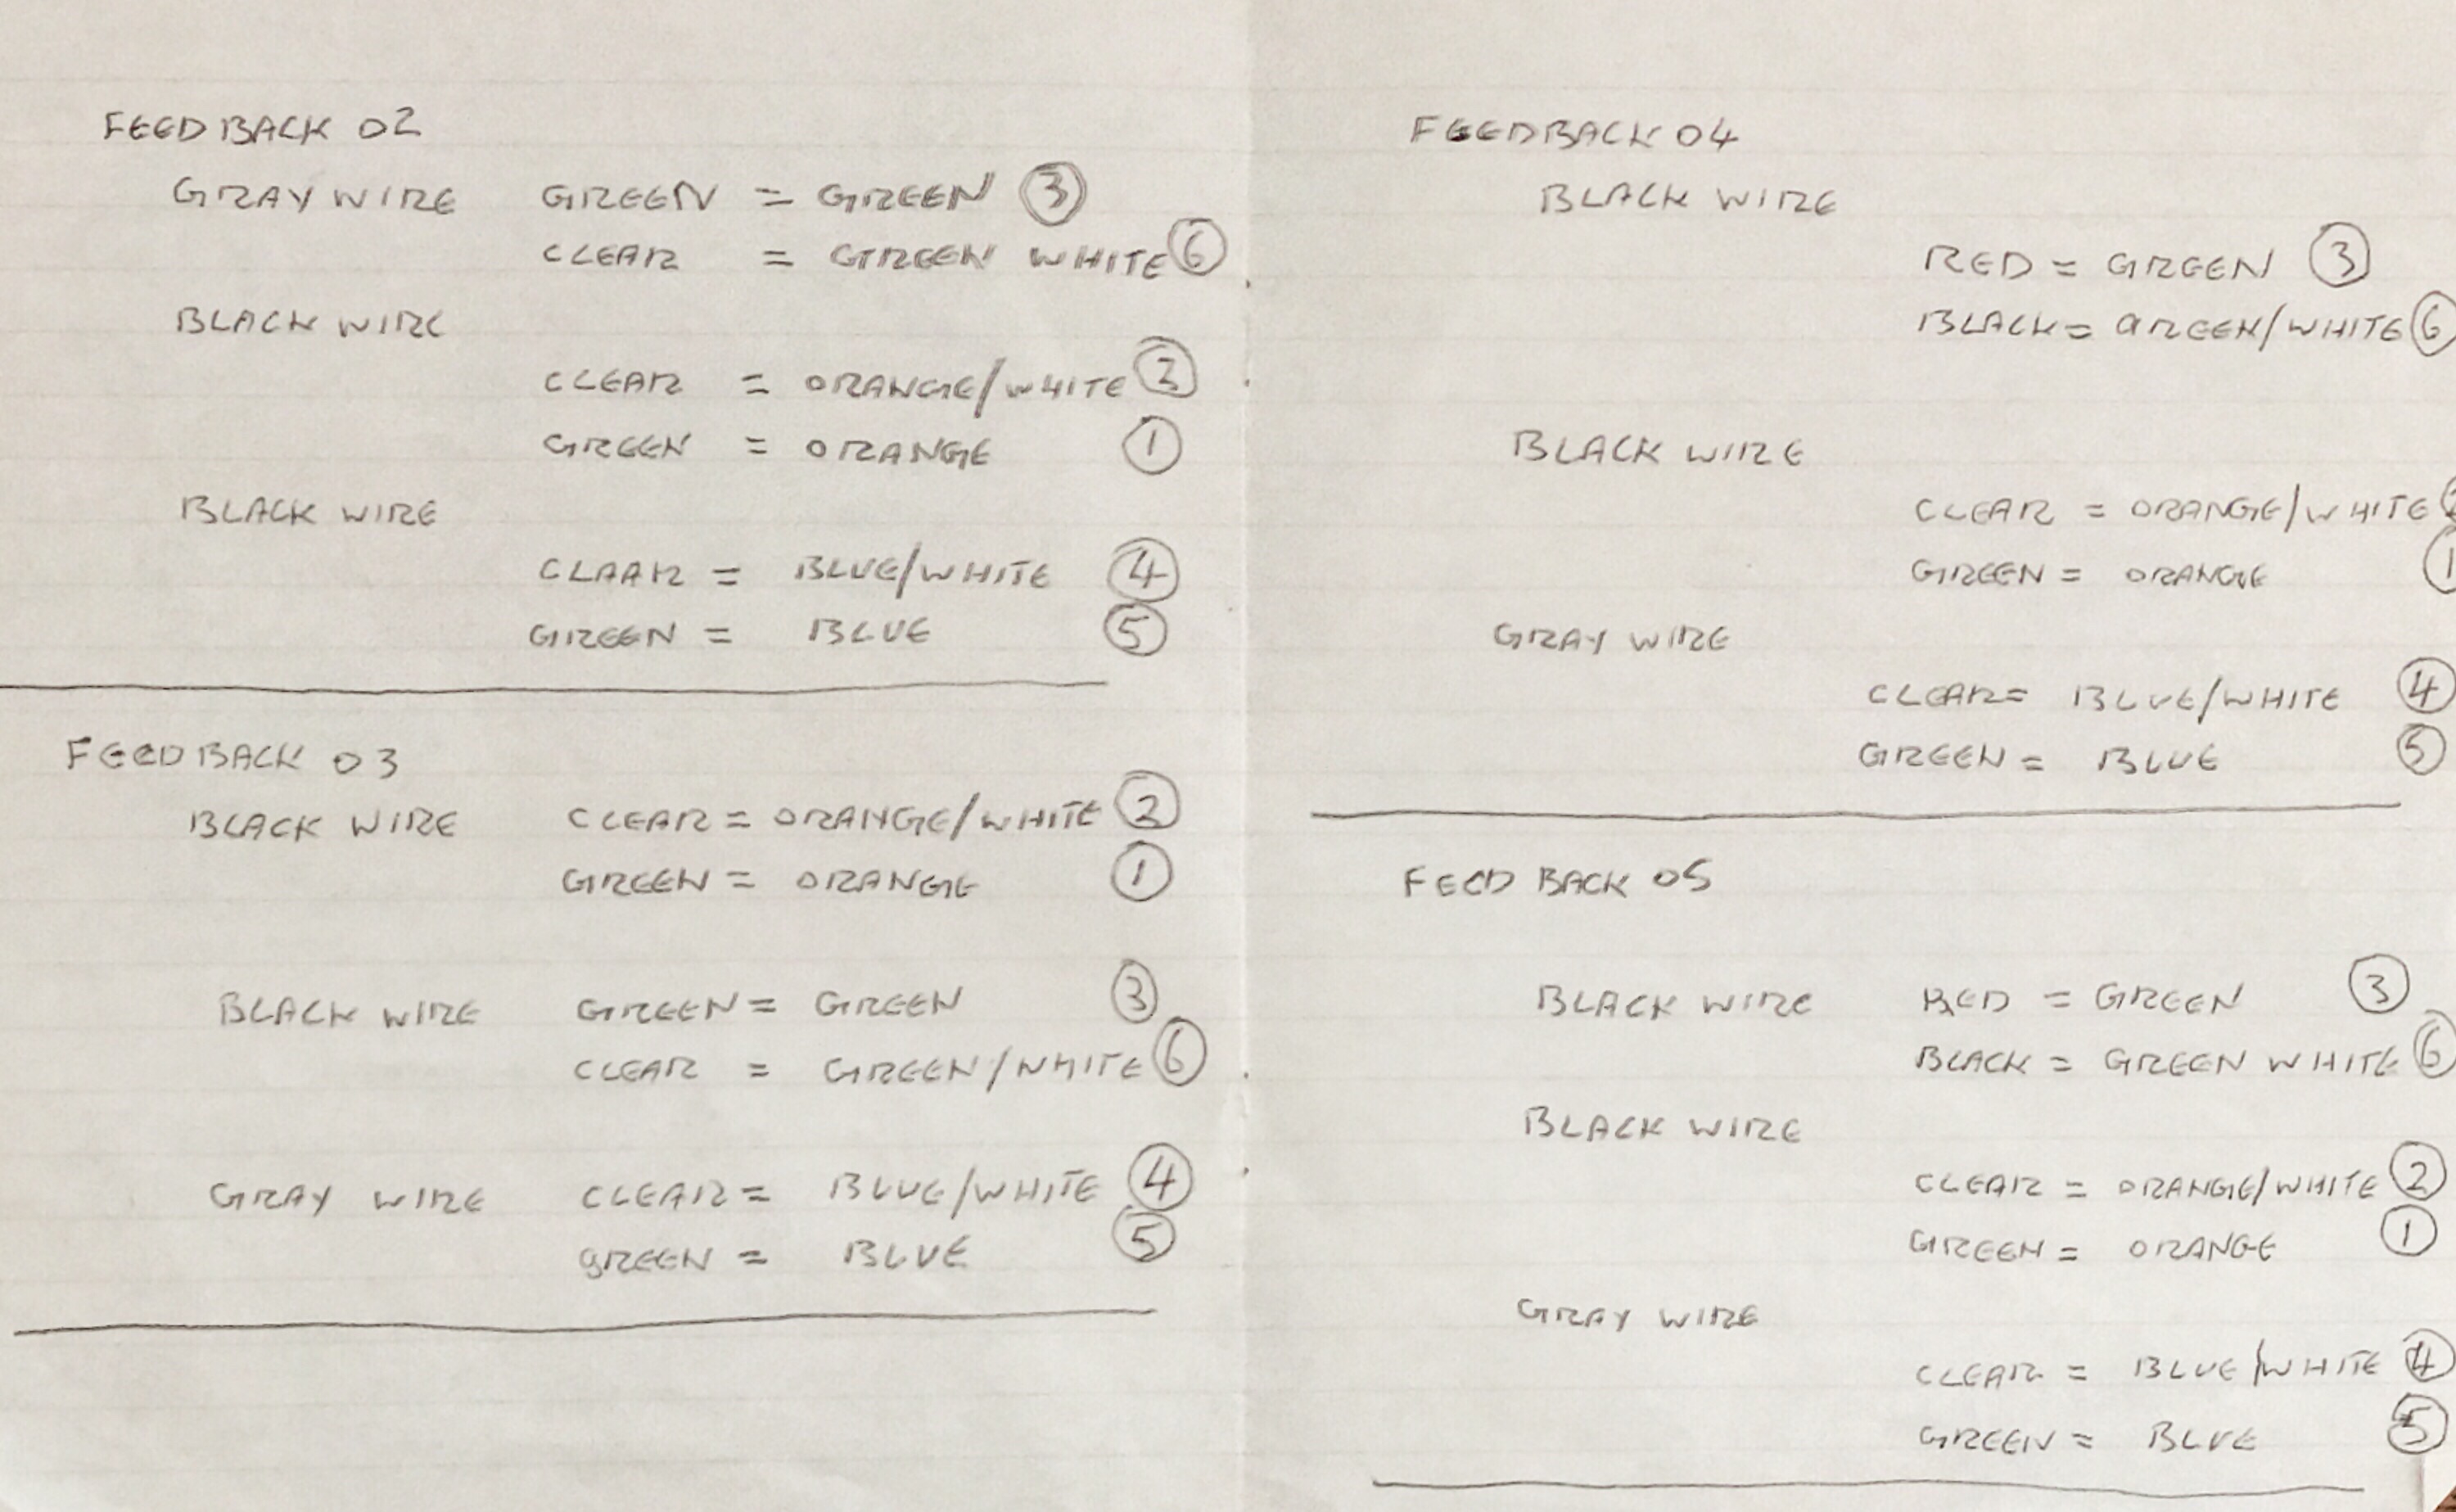 FEEDBACK 02
GRAY WIRE GREEN = GREEN 3
CLEAR = GREEN WHITE 6
BLACK WIRE
CLEAR = ORANGE/WHITE
GREEN = ORANGE 1
BLACK WIRE
CLAAR = BLUE/WHITE 4
GREEN = BLUE 5
FEEDBACK 03
BLACK WIRE CLEAR = ORANGE/WHITE 2
GREEN = ORANGE 1
BLACK WIRE GREEN = GREEN 3
CLEAR = GREEN/WHITE 6
GRAY WIRE CLEAR = BLUE/WHITE 4
GREEN = BLUE 5
FEEDBACK 04
BLACK WIRE
RED = GREEN 3
BLACK = GREEN/WHITE 6
BLACK WIRE
CLEAR = ORANGE/WHITE
GREEN = ORANGE 1
GRAY WIRE
CLEAR = BLUE/WHITE 4
GREEN = BLUE 5
FEEDBACK 05
BLACK WIRE RED = GREEN 3
BLACK = GREEN WHITE 6
BLACK WIRE
CLEAR = ORANGE/WHITE 2
GREEN = ORANGE 1
GRAY WIRE
CLEAR = BLUE/WHITE 4
GREEN = BLUE 5